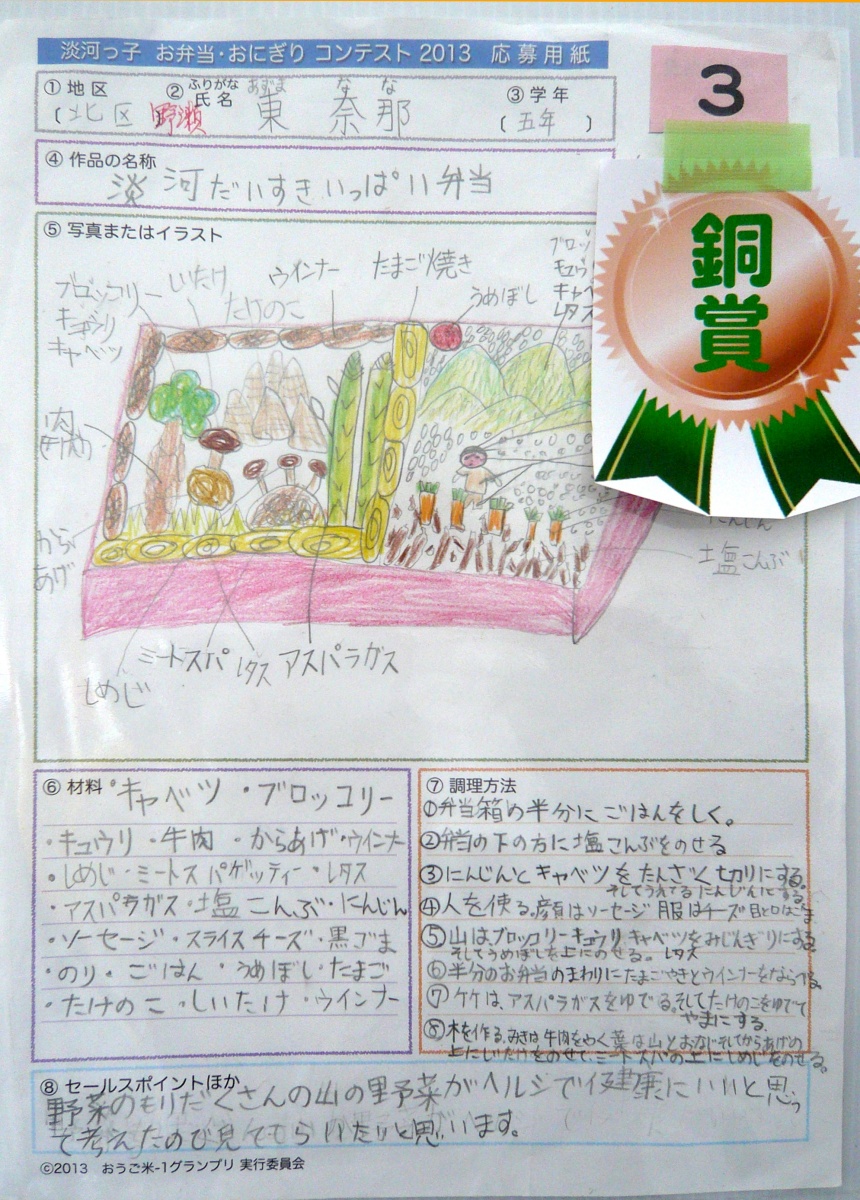 淡河っ子 お弁当・おにぎり コンテスト 2013 応募用紙
3
① 地区 ② ふりがな 氏名 あずま なな ③ 学年
(北区 野瀬 東 奈那 (五年)
④ 作品の名称
淡河だいすきいっぱい弁当
銅賞
⑤ 写真またはイラスト
ブロッコリー
キュウリ
キャベツ
しいたけ
たけのこ
ウインナー
たまご焼き
うめぼし
ブロッ
キュウ
キャベ
レタス
肉
からあげ
にんじん
土塩こんぶ
しめじ
ミートスパ
レタス
アスパラガス
⑥ 材料 ・キャベツ ・ブロッコリー
・キュウリ ・牛肉 ・からあげ・ウインナー
・しめじ・ミートスパゲッティー・レタス
・アスパラガス・塩こんぶ・にんじん
・ソーセージ・スライスチーズ・黒ごま
・のり・ごはん・うめぼし・たまご
・たけのこ・しいたけ・ウインナー
⑦ 調理方法
①弁当箱の半分にごはんをしく。
②弁当の下の方に塩こんぶをのせる
③にんじんとキャベツをたんざく切りにする。
そしてうえてるにんじんにする。
④人を使る。顔はソーセージ 服はチーズ 目と口はごま
⑤山はブロッコリーキュウリキャベツをみじんぎりにする
そしてうめぼしを上にのせる。 レタス
⑥半分のお弁当のまわりにたまごやきとウインナーをならべる
⑦ケケは、アスパラガスをゆでる。そしてたけのこをゆでて
やまにする。
⑧木を作る。みきは牛肉をやく葉は山とおなじそしてからあげの
上にしいたけをのせて、ミートスパの上にしめじをのせる。
⑧ セールスポイントほか
野菜のもりだくさんの山の里野菜がヘルシで健康にいいと思っ
て考えたので見てもらいたいと思います。
©2013 おうご米-1グランプリ 実行委員会